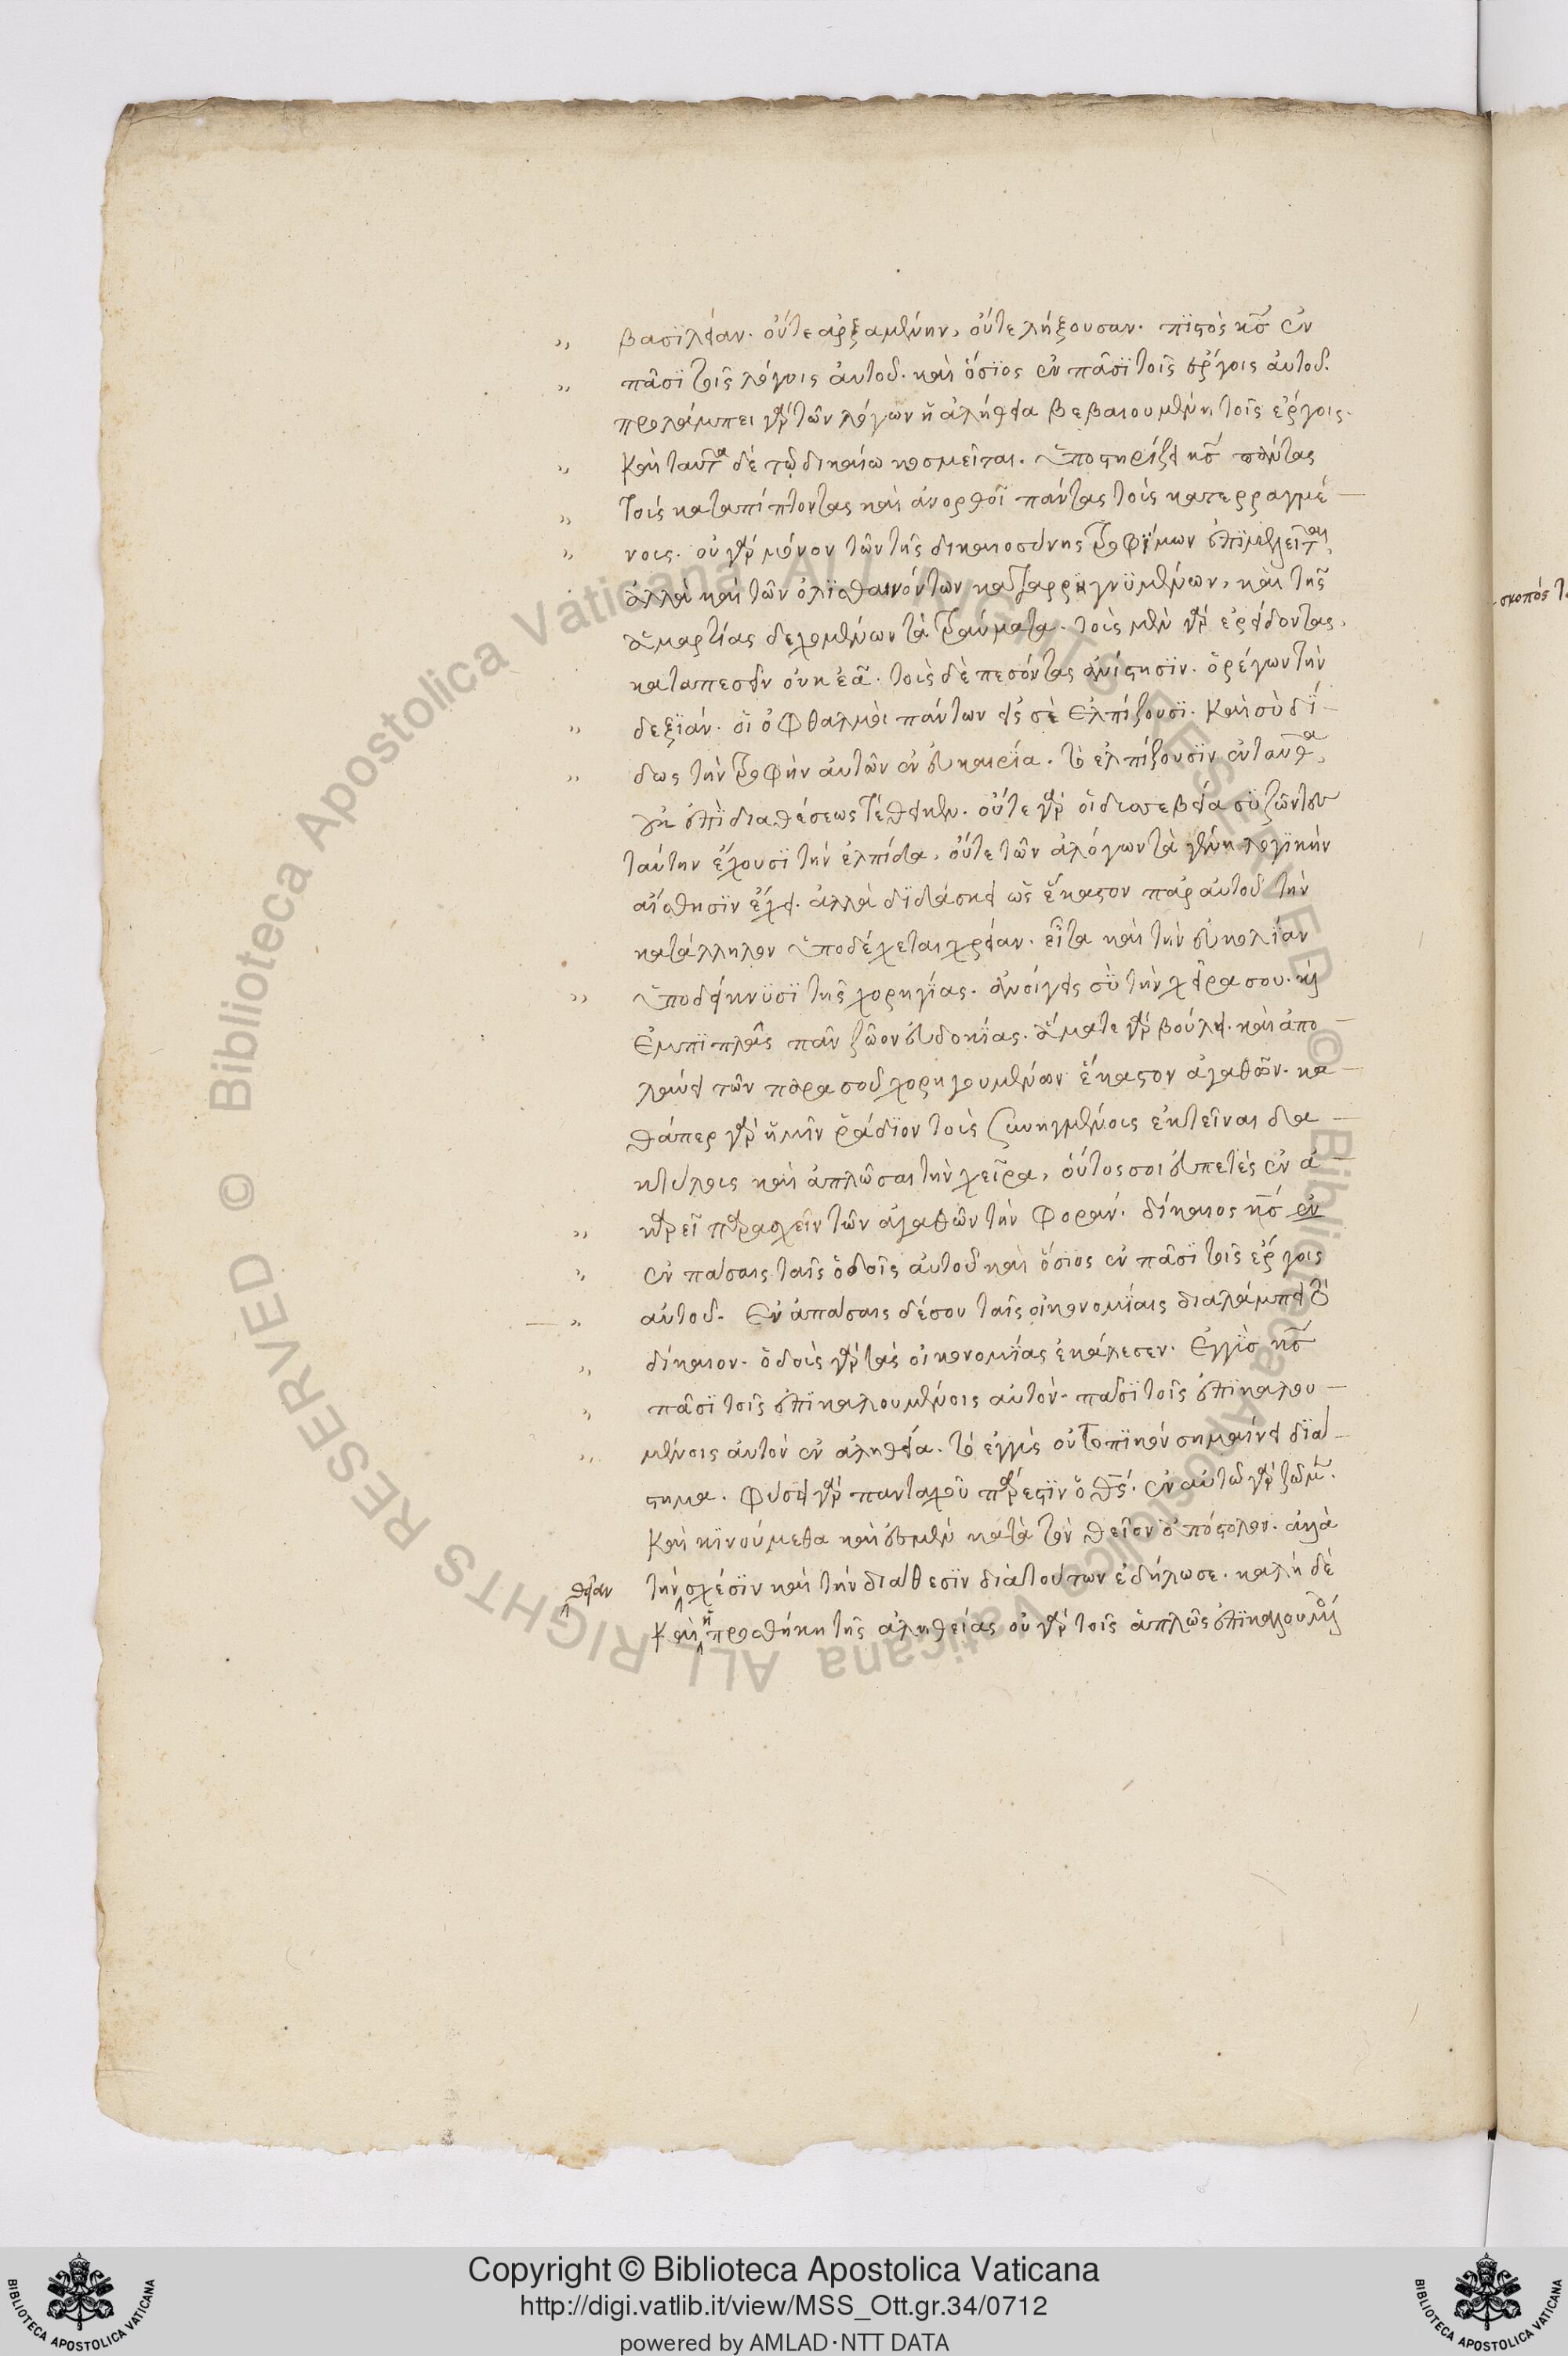 βασϊλείαν. οὔτε ἀρξαμένην, οὔτε λήξουσαν. πϊστὸς κ̅ς̅ ἐν
πᾶσϊ τοῖς λόγοις ἀυτοῦ. καὶ ὅσϊος ἐν πᾶσϊ τοῖς ἔργοις ἀυτοῦ.
προλάμπει γὰρ τῶν λόγων ἡ ἀλήθεια βεβαιουμένη τοῖς ἔργοις.
Καὶ ταῦτα δὲ τῷ δικαίω κοσμεῖται. ὑποστηρίζει κ̅ς̅ πάντας
τοὺς καταπίπτοντας καὶ ἀνορθοῖ πάντας τοὺς κατερραγμέ
νους. οὐ γὰρ μόνον τῶν τῆς δικαιοσύνης τροφϊμων ἐπϊμελεῖται,
ἀλλὰ καὶ τῶν ὀλϊσθαινόντων καταρρηγνϋμένων, καὶ τῆς
ἁμαρτίας δεχομένων τὰ τραύματα. τοὺς μὲν γὰρ ἐρείδοντας,
καταπεσεῖν οὐκ ἐᾶ. τοὺς δὲ πεσόντας ἀνίστησϊν. ὀρέγων τὴν
δεξϊάν. οἱ ὀφθαλμοὶ πάντων εἰς σὲ ἐλπίζουσϊ. Καὶ σὺ δϊ
δως τὴν τροφὴν ἀυτῶν ἐν ἐυκαιρία. τὸ ἐλπίζουσϊν ἐνταῦθα,
οὐκ ἐπϊ διαθέσεως τέθεικεν. οὔτε γὰρ οἱ δυσσεβεία συζῶντες
ταύτην ἔχουσϊ τὴν ἐλπίδα, οὔτε τῶν ἀλόγων τὰ γένη λογϊκὴν
αἴσθησϊν ἔχει. ἀλλὰ δϊδάσκει ὡς ἕκαστον παρ ἀυτοῦ τὴν
κατάλληλον ὑποδέχεται χρείαν. εἶτα καὶ τὴν ἐυκολίαν
ὑποδείκνϋσϊ τῆς χορηγϊας. ἀνοίγεις σϋ τὴν χεῖρα σου. κὶ
Ἐμπϊπλᾶς πᾶν ζῶον ἐυδοκϊας. ἅμα τε γὰρ βούλει. καὶ ἀπο
λαύει τῶν παρα σοῦ χορηγουμένων ἕκαστον ἀγαθῶν. κα
θάπερ γὰρ ἡμῖν ῥάδϊον τοὺς συνηγμένους ἐκτεῖναι δα
κτύλους καὶ ἁπλῶσαι τὴν χεῖρα, οὕτος σοι ἐυπετὲς ἐν ἀ
καρεῖ παρασχεῖν τῶν ἀγαθῶν τὴν φοράν. δίκαιος κ̅ς̅ ἐν
ἐν πάσαις ταῖς ὁδοῖς ἀυτοῦ καὶ ὅσϊος ἐν πᾶσϊ τοῖς ἔργοις
αὐτοῦ. Ἐν ἁπάσαις δέ σου ταῖς οἰκονομίαις διαλάμπει τὸ
δίκαιον. ὁδοὺς γὰρ τὰς οἰκονομϊας ἐκάλεσεν. Ἐγγϋς κ̅ς̅
πᾶσϊ τοῖς ἐπϊκαλουμένοις αὐτόν. πᾶσϊ τοῖς ἐπϊκαλου
μένοις ἀυτὸν ἐν ἀληθεία. τὸ ἐγγὺς οὐ τοπϊκὸν σημαίνει δϊα
στημα. φύσει γὰρ πανταχοῦ πάρεστϊν ὁ θ̅ς̅. ἐν αὐτῶ γὰρ ζῶμεν.
Καὶ κϊνούμεθα καὶ ἐσμὲν κατὰ τὸν θεῖον ἀπόστολον. ἀλλὰ
θείαν τὴν σχέσϊν καὶ τὴν διάθεσϊν διὰ τούτων ἐδήλωσε. καλὴ δὲ
Καὶ ἡ προσθήκη τῆς ἀληθείας οὐ γὰρ τοῖς ἁπλῶς ἐπϊκαλουμένοις
σκοπός
Copyright © Biblioteca Apostolica Vaticana
http://digi.vatlib.it/view/MSS_Ott.gr.34/0712
powered by AMLAD·NTT DATA
BIBLIOTECA APOSTOLICA VATICANA
BIBLIOTECA APOSTOLICA VATICANA
© Biblioteca Apostolica Vaticana ALL RIGHTS RESERVED
© Biblioteca Apostolica Vaticana ALL RIGHTS RESERVED